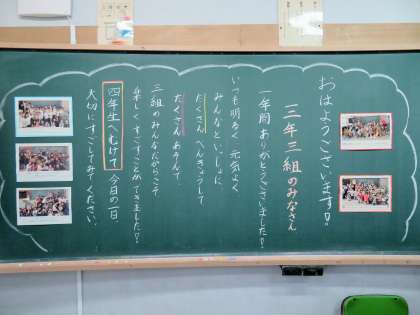 おはようございます!!
三年三組のみなさん
一年間ありがとうございました!!
いつも明るく元気よく
みんなといっしょに
たくさんべんきょうして
たくさんあそんで、
三組のみんなだからこそ
楽しくすごすことができました!!
四年生へむけて今日の一日、
大切にすごしてみてください。